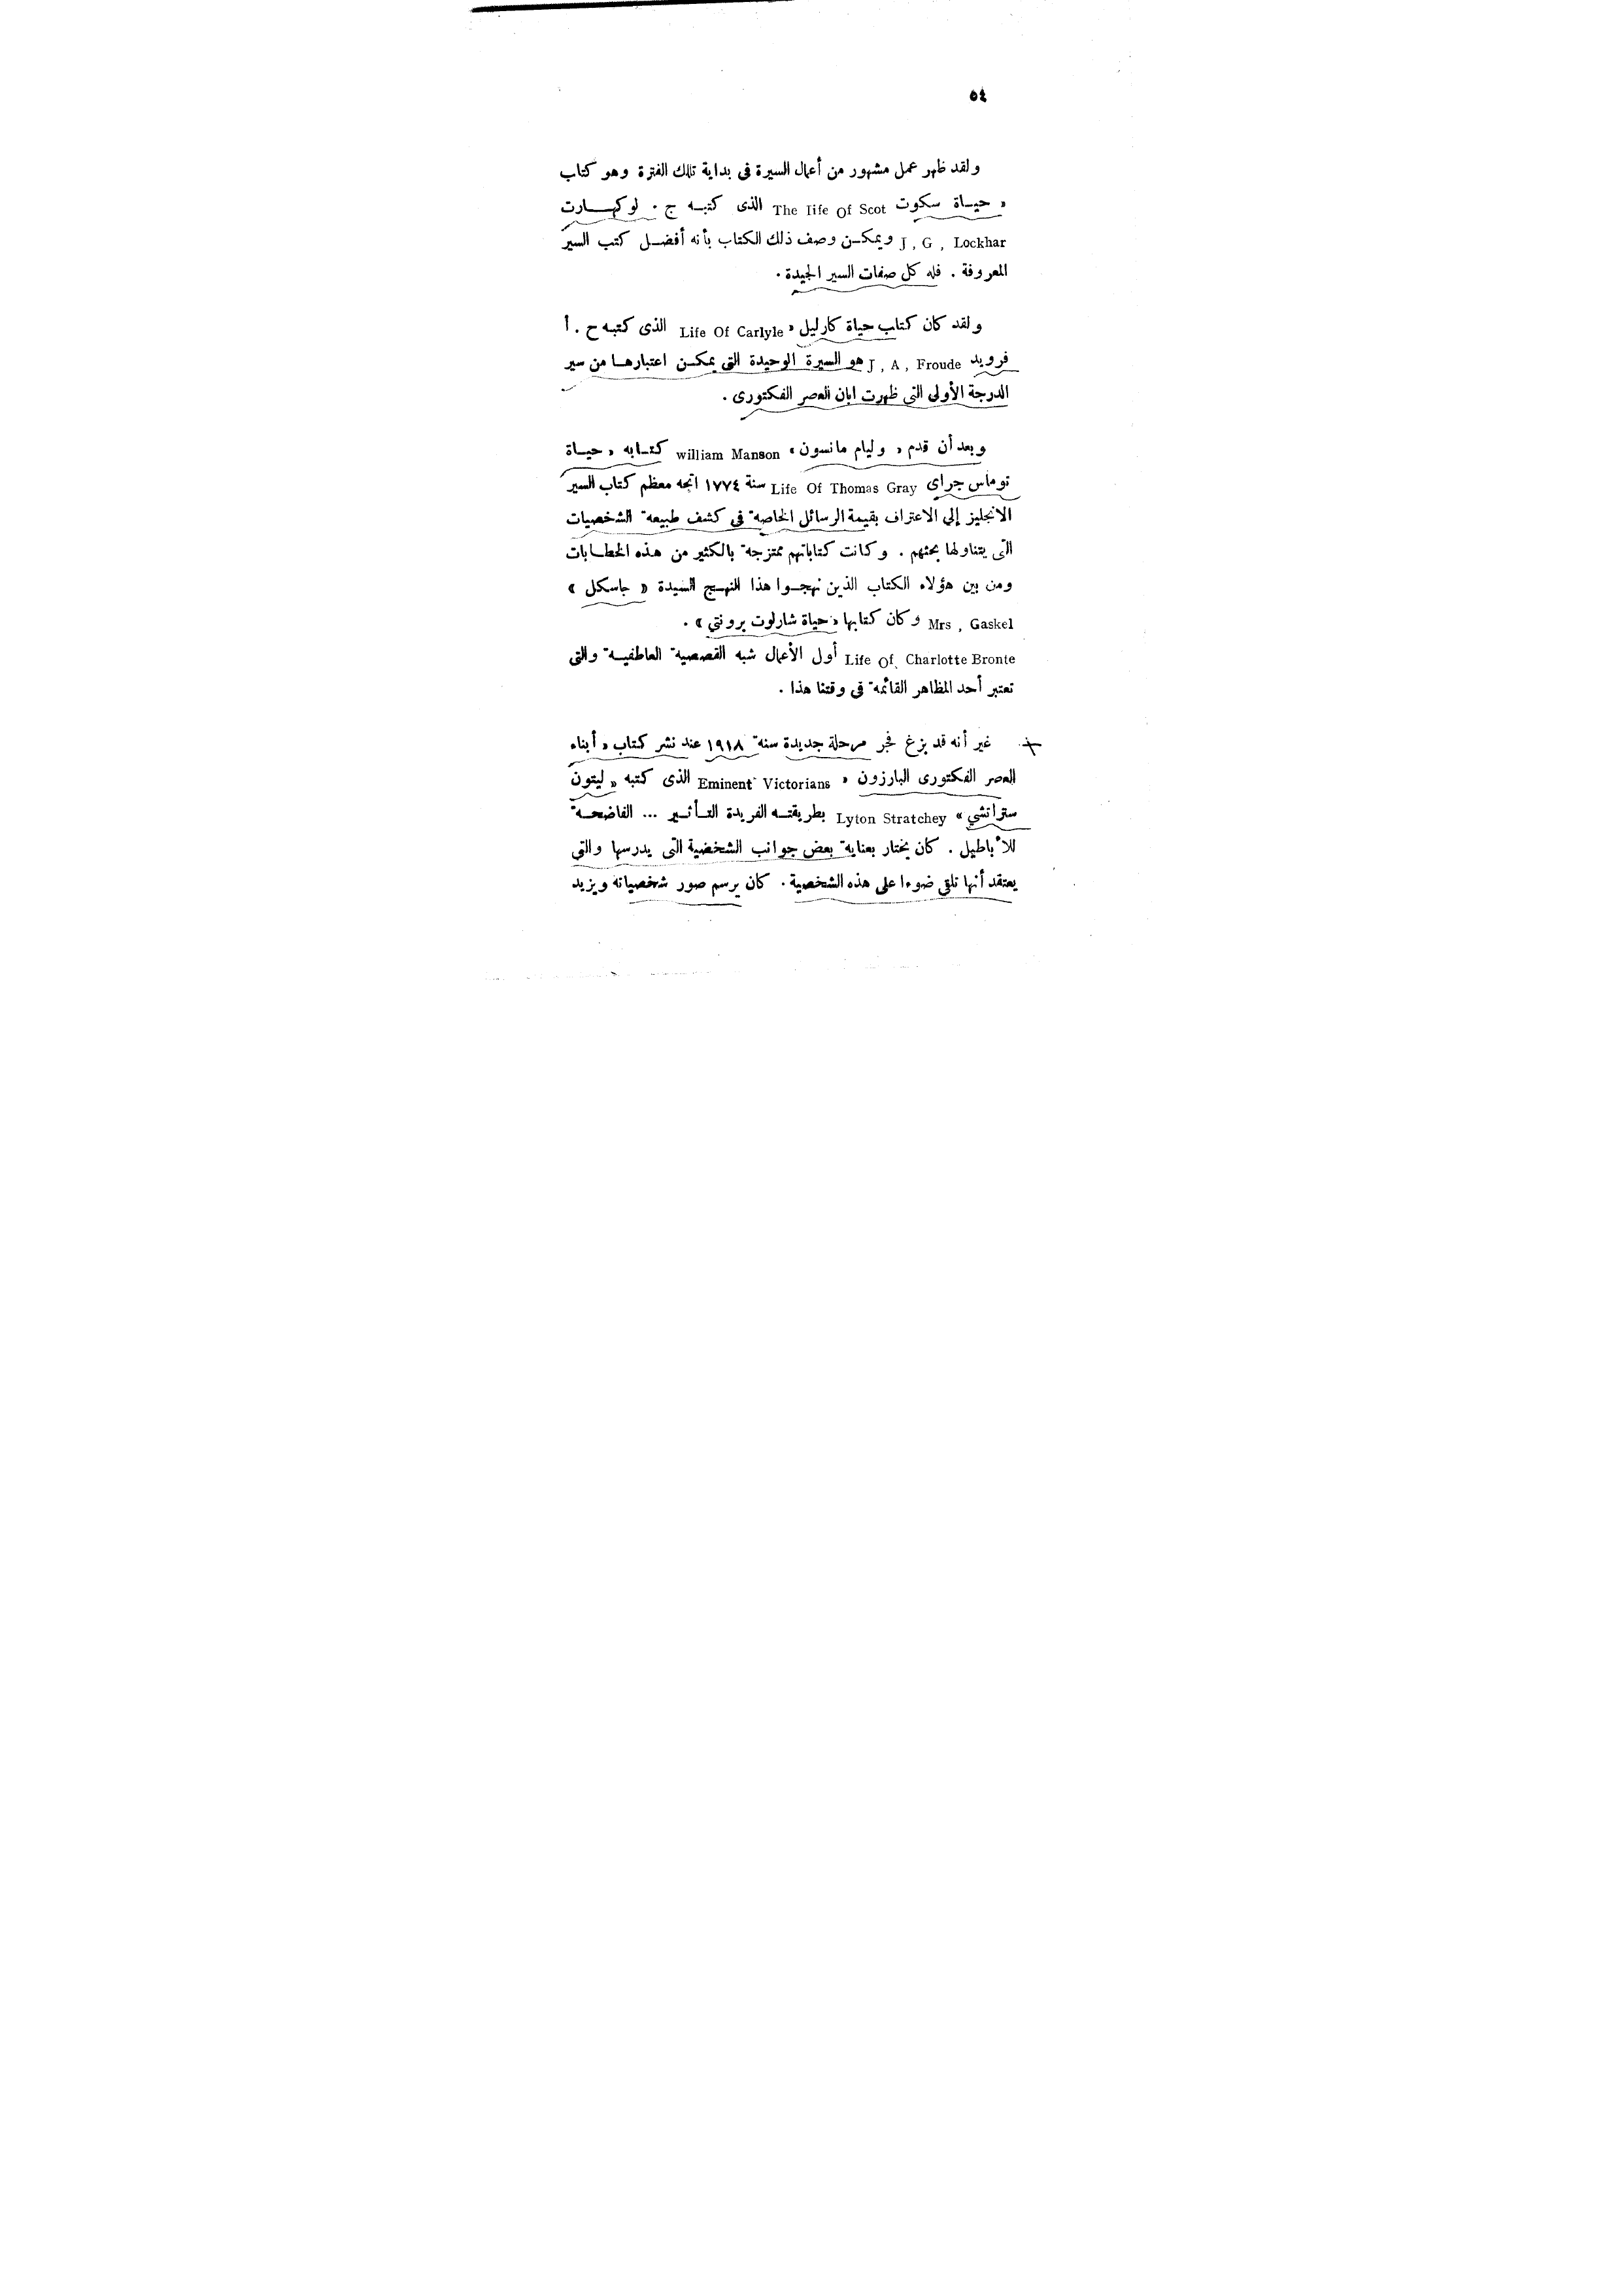 ٥٤
ولقد ظهر عمل مشهور من أعمال السيرة فى بداية تلك الفترة وهو كتاب
« حيـاة سكوت The life Of Scot الذى كتبـه ج . لوكهـارت
J , G , Lockhar ويمكـن وصف ذلك الكتاب بأنه أفضـل كتب السير
المعروفة . فله كل صفات السير الجيدة .
ولقد كان كتاب حياة كارليل » Life Of Carlyle الذى كتبه ح . أ
فرويد J , A , Froude هو السيرة الوحيدة التى يمكـن اعتبارهـا من سير
الدرجة الأولى التى ظهرت ابان العصر الفكتورى .
وبعد أن قدم « وليام مانسون » william Manson كتـابه « حيـاة
توماس جراى Life Of Thomas Gray سنة ١٧٧٤ اتجه معظم كتاب السير
الانجليز إلى الاعتراف بقيمة الرسائل الخاصة فى كشف طبيعة الشخصيات
التى يتناولها بحثهم . وكانت كتاباتهم ممتزجة بالكثير من هذه الخطـابات
ومن بين هؤلاء الكتاب الذين نهجـوا هذا النهـج السيدة « جاسكل »
Mrs , Gaskel وكان كتابها « حياة شارلوت برونتي » .
Life Of Charlotte Bronte أول الأعمال شبه القصصية العاطفيـة والتى
تعتبر أحد المظاهر القائمة فى وقتنا هذا .
غير أنه قد بزغ فجر مرحلة جديدة سنة ١٩١٨ عند نشر كتاب « أبناء
العصر الفكتورى البارزون » Eminent Victorians الذى كتبه « ليتون
ستراتشي » Lyton Stratchey بطريقتـه الفريدة التـأثـير ... الفاضحـة
للأباطيل . كان يختار بعناية بعض جوانب الشخصية التى يدرسها والتى
يعتقد أنها تلقى ضوءا على هذه الشخصية . كان يرسم صور شخصياته ويزيد